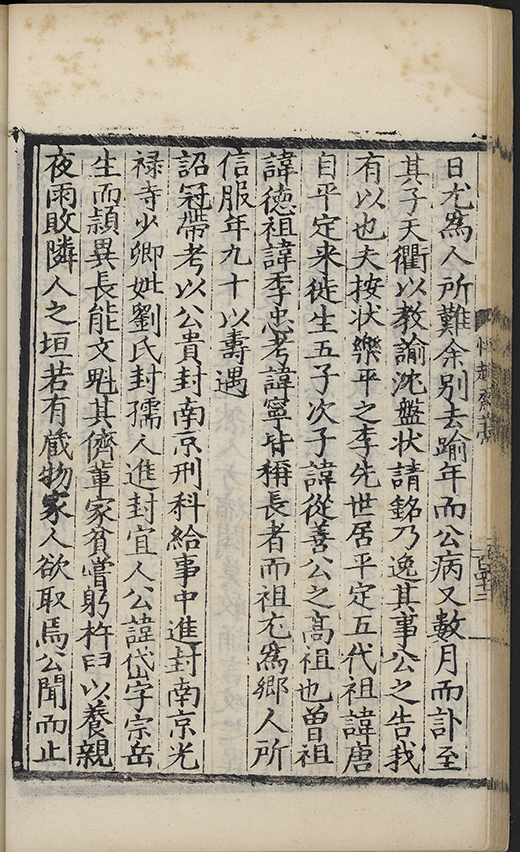 日尤爲人所難余别去踰年而公病又數月而訃至
其子天衢以教諭沈盤状請銘乃逸其事公之告我
有以也夫按状樂平之李先世居平定五代祖諱唐
自平定来徙生五子次子諱從善公之高祖也曽祖
諱德祖諱季忠考諱寧皆稱長者而祖尤爲鄉人所
信服年九十以壽遇
詔冠帶考以公貴封南京刑科給事中進封南京光
禄寺少卿妣劉氏封孺人進封宜人公諱岱字宗岳
生而頴異長能文魁其儕輩家貧嘗躬杵臼以養親
夜雨敗隣人之垣若有蔵物家人欲取焉公聞而止